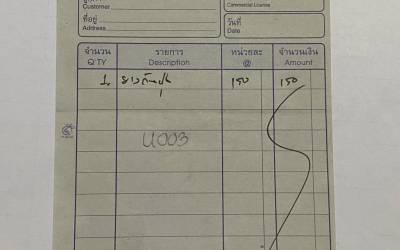 Customer
Commercial License
ที่อยู่
Address
วันที่
Date
จำนวน รายการ หน่วยละ จำนวนเงิน
Q'TY Description @ Amount
1 150 150
U003